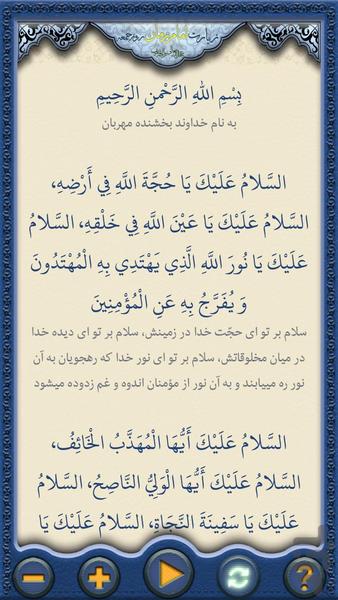 بِسْمِ اللهِ الرَّحْمنِ الرَّحِيمِ
به نام خداوند بخشنده مهربان
السَّلامُ عَلَيْكَ يَا حُجَّةَ اللَّهِ فِي أَرْضِهِ،
السَّلامُ عَلَيْكَ يَا عَيْنَ اللَّهِ فِي خَلْقِهِ، السَّلامُ
عَلَيْكَ يَا نُورَ اللَّهِ الَّذِي يَهْتَدِي بِهِ الْمُهْتَدُونَ
وَ يُفَرَّجُ بِهِ عَنِ الْمُؤْمِنِينَ
سلام بر تو ای حجّت خدا در زمینش، سلام بر تو ای دیده خدا
در میان مخلوقاتش، سلام بر تو ای نور خدا که رهجویان به آن
نور ره مییابند و به آن نور از مؤمنان اندوه و غم زدوده میشود
السَّلامُ عَلَيْكَ أَيُّهَا الْمُهَذَّبُ الْخَائِفُ،
السَّلامُ عَلَيْكَ أَيُّهَا الْوَلِيُّ النَّاصِحُ، السَّلامُ
عَلَيْكَ يَا سَفِينَةَ النَّجَاةِ، السَّلامُ عَلَيْكَ يَا